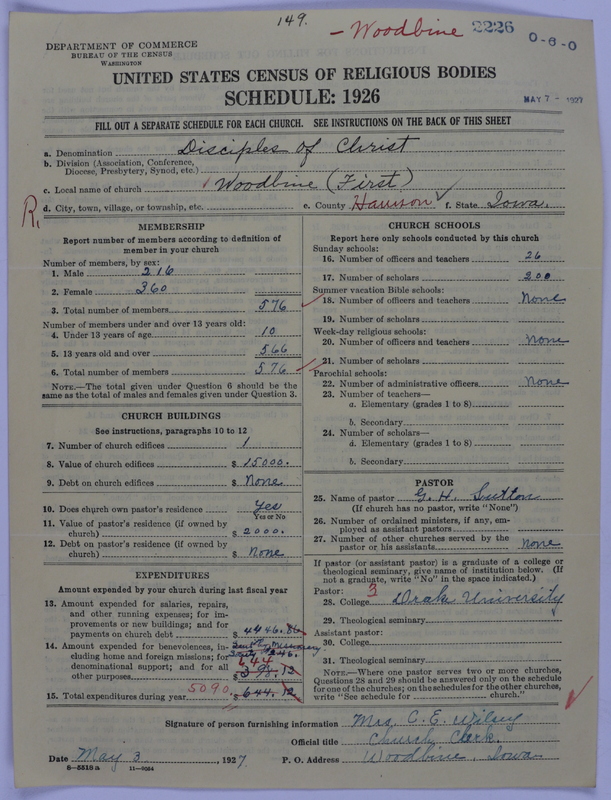 149.
- Woodbine 2226 0-6-0
DEPARTMENT OF COMMERCE
BUREAU OF THE CENSUS
WASHINGTON
UNITED STATES CENSUS OF RELIGIOUS BODIES
SCHEDULE: 1926
MAY 7 - 1927
FILL OUT A SEPARATE SCHEDULE FOR EACH CHURCH. SEE INSTRUCTIONS ON THE BACK OF THIS SHEET
a. Denomination Disciples of Christ
b. Division (Association, Conference,
Diocese, Presbytery, Synod, etc.)
c. Local name of church Woodbine (First)
R. d. City, town, village, or township, etc. e. County Harrison f. State Iowa.
MEMBERSHIP
Report number of members according to definition of
member in your church
Number of members, by sex:
1. Male 216
2. Female 360
3. Total number of members 576
Number of members under and over 13 years old:
4. Under 13 years of age 10
5. 13 years old and over 566
6. Total number of members 576
NOTE.—The total given under Question 6 should be the
same as the total of males and females given under Question 3.
CHURCH BUILDINGS
See instructions, paragraphs 10 to 12
7. Number of church edifices 1
8. Value of church edifices $ 15000.
9. Debt on church edifices $ None
10. Does church own pastor's residence Yes
Yes or No
11. Value of pastor's residence (if owned by
church) $ 2000.
12. Debt on pastor's residence (if owned by
church) $ None
EXPENDITURES
Amount expended by your church during last fiscal year
13. Amount expended for salaries, repairs,
and other running expenses; for im-
provements or new buildings; and for
payments on church debt $ 4446.86
14. Amount expended for benevolences, in-
cluding home and foreign missions; for
denominational support; and for all
other purposes $ 644
15. Total expenditures during year 5090. $ 644.12
CHURCH SCHOOLS
Report here only schools conducted by this church
Sunday schools:
16. Number of officers and teachers 26
17. Number of scholars 200
Summer vacation Bible schools:
18. Number of officers and teachers None
19. Number of scholars
Week-day religious schools:
20. Number of officers and teachers None
21. Number of scholars
Parochial schools:
22. Number of administrative officers None
23. Number of teachers—
a. Elementary (grades 1 to 8)
b. Secondary
24. Number of scholars—
a. Elementary (grades 1 to 8)
b. Secondary
PASTOR
25. Name of pastor G. H. Sutton
(If church has no pastor, write "None")
26. Number of ordained ministers, if any, em-
ployed as assistant pastors
27. Number of other churches served by the
pastor or his assistants None
If pastor (or assistant pastor) is a graduate of a college or
theological seminary, give name of institution below. (If
not a graduate, write "No" in the space indicated.)
Pastor: 3
28. College Drake University
29. Theological seminary
Assistant pastor:
30. College
31. Theological seminary
NOTE.—Where one pastor serves two or more churches,
Questions 28 and 29 should be answered only on the schedule
for one of the churches; on the schedules for the other churches,
write "See schedule for church."
Signature of person furnishing information Mrs. C. E. Wiley
Official title Church Clerk.
Date May 3, 1927. P. O. Address Woodbine, Iowa
8-5518a 11-9054